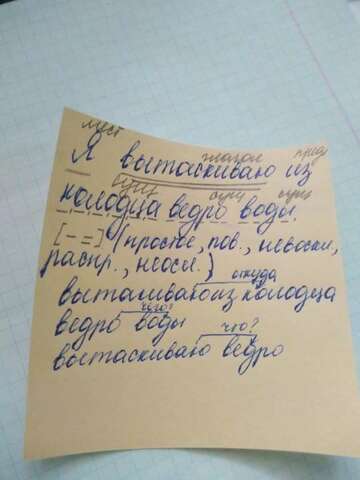 мест
глагол пред
Я вытаскиваю из
сущ сущ сущ
колодца ведро воды.
[- =] (простое, пов., невоскл,
распр., неосл.)
откуда
вытаскиваю из колодца
чего?
ведро воды
что?
вытаскиваю ведро